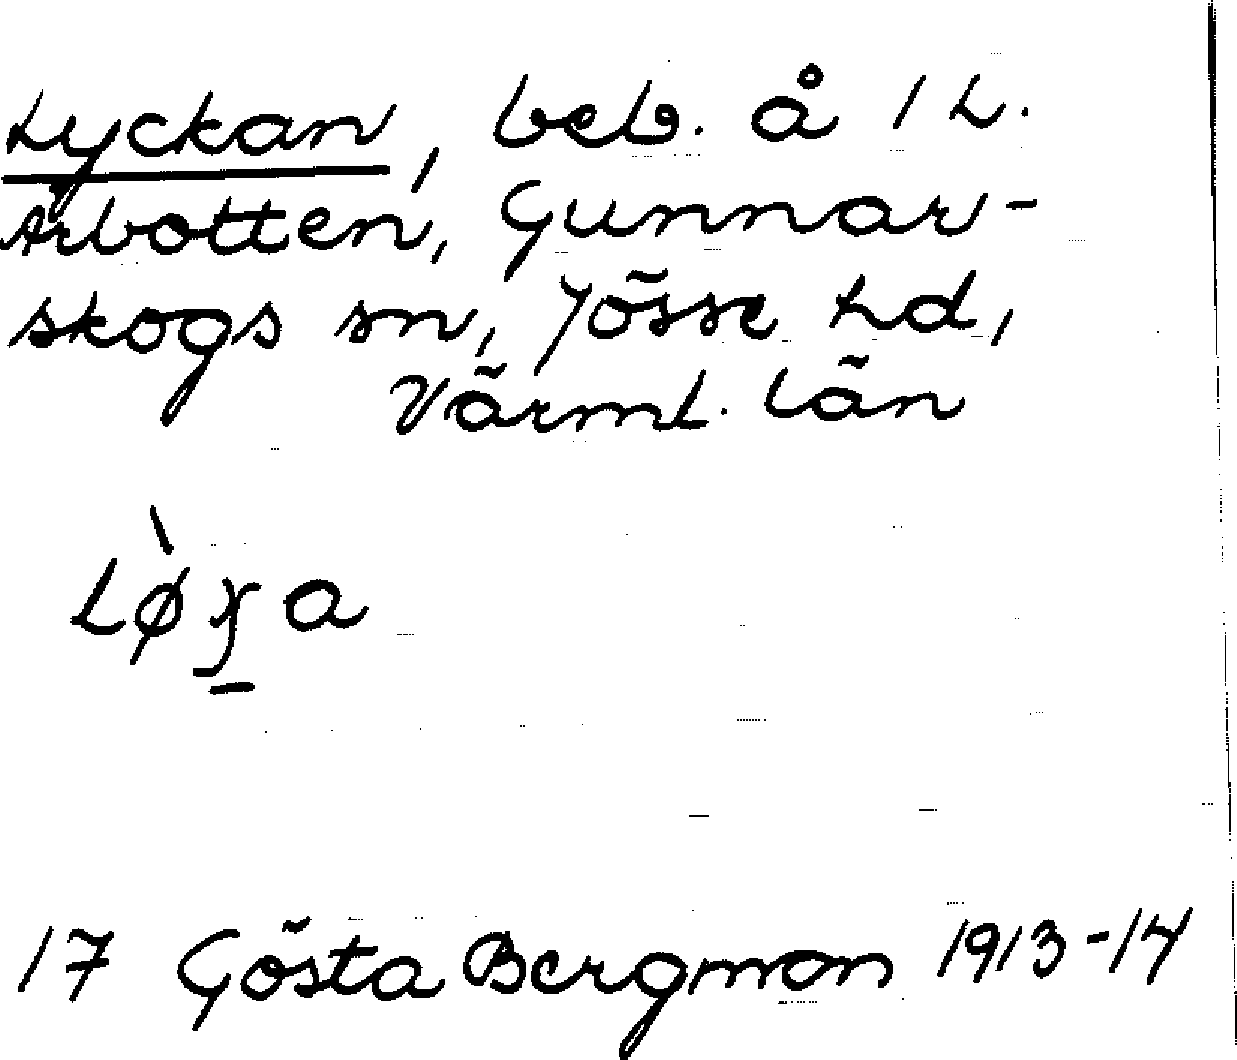 Lyckan, beb. å 1 L.
Arbotten, Gunnar-
skogs sn, Jösse hd,
Värml. län
17 Gösta Bergman 1913-14